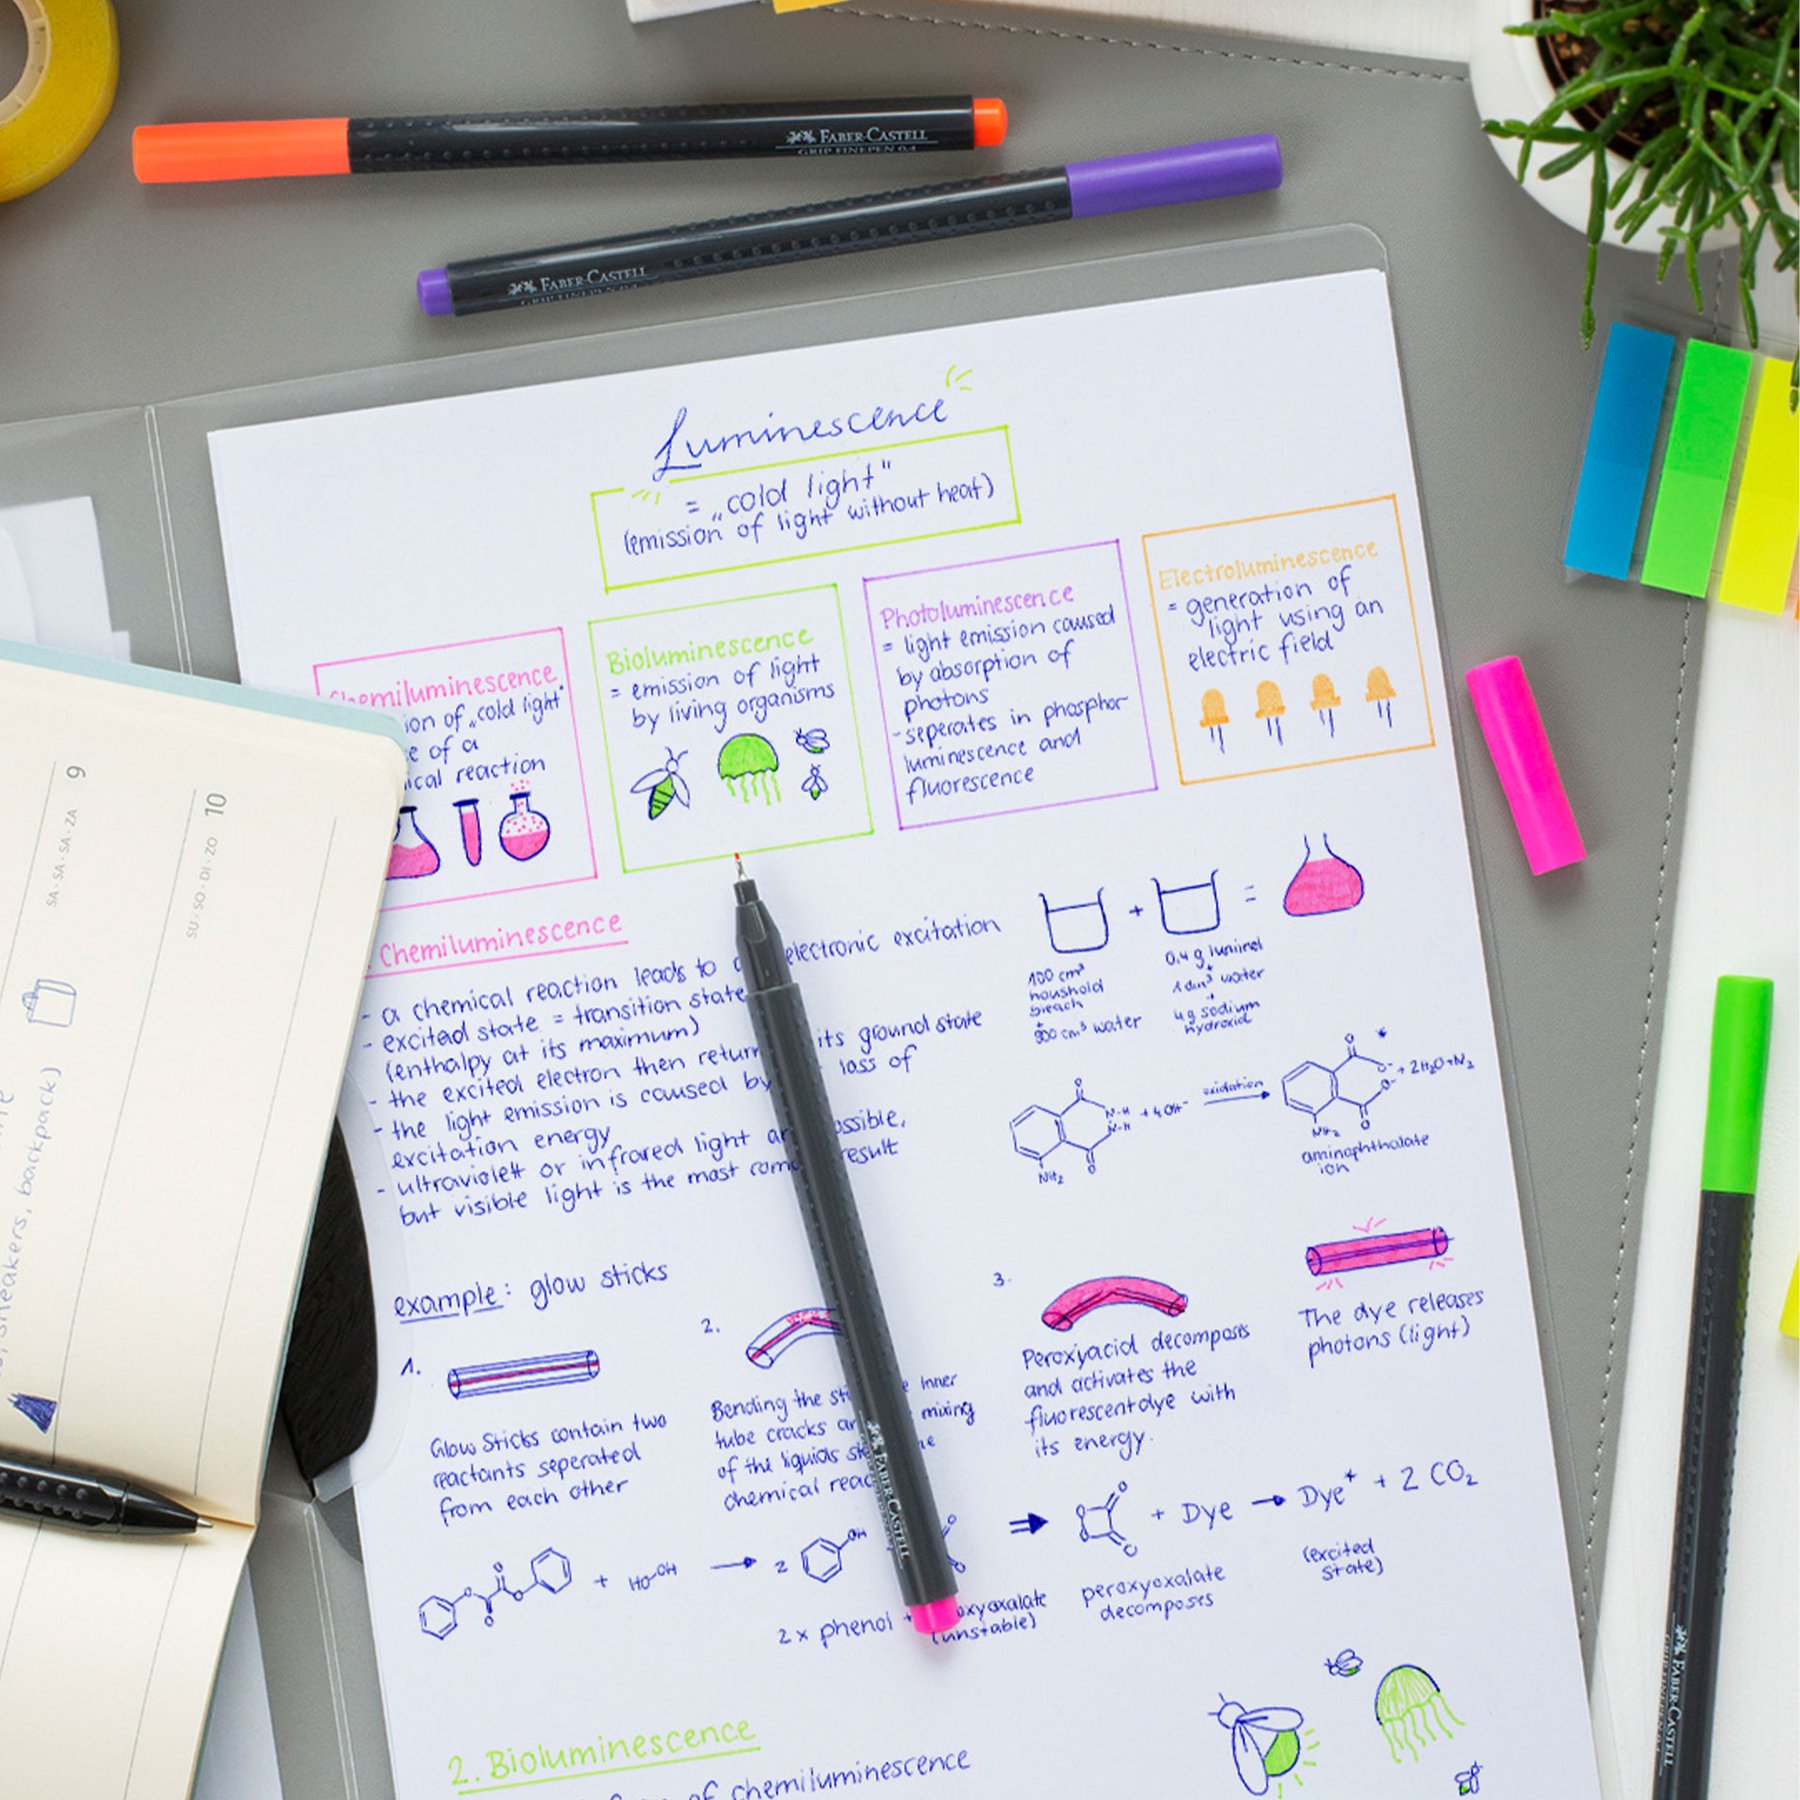 FABER-CASTELL
GRIP FINEPEN 0.4
FABER-CASTELL
GRIP FINEPEN 0.4
Luminescence
= „cold light"
(emission of light without heat)
Chemiluminescence
ion of „cold light"
e of a
ical reaction
Bioluminescence
= emission of light
by living organisms
Photoluminescence
= light emission caused
by absorption of
photons
- seperates in phosphor-
luminescence and
fluorescence
Electroluminescence
= generation of
light using an
electric field
9
SA · SA · SA · ZA
10
SU · SO · DI · ZO
sneakers, backpack)
Chemiluminescence
- a chemical reaction leads to electronic excitation
- excited state = transition state
(enthalpy at its maximum)
- the excited electron then return its ground state
- the light emission is caused by loss of
excitation energy
- ultraviolett or infrared light ar ossible,
but visible light is the most com result
+
=
100 cm³
houshold
bleach
+
900 cm³ water
0.4 g luminol
+
1 dm³ water
+
4 g sodium
hydroxid
N-H
N-H
NH₂
+ 4 OH⁻
oxidation
*
O
O⁻
O⁻
O
NH₂
+ 2H₂O + N₂
aminophthalate
ion
example: glow sticks
1.
Glow Sticks contain two
reactants seperated
from each other
2.
Bending the sti e inner
tube cracks an mixing
of the liquids st he
chemical reac
3.
Peroxyacid decomposes
and activates the
fluorescent dye with
its energy.
The dye releases
photons (light)
+ HO-OH → 2 OH
2 x phenol + oxyoxalate
(unstable)
⇒ + Dye → Dye* + 2 CO₂
peroxyoxalate
decomposes
(excited
state)
FABER-CASTELL
2. Bioluminescence
of chemiluminescence
FABER-CASTELL